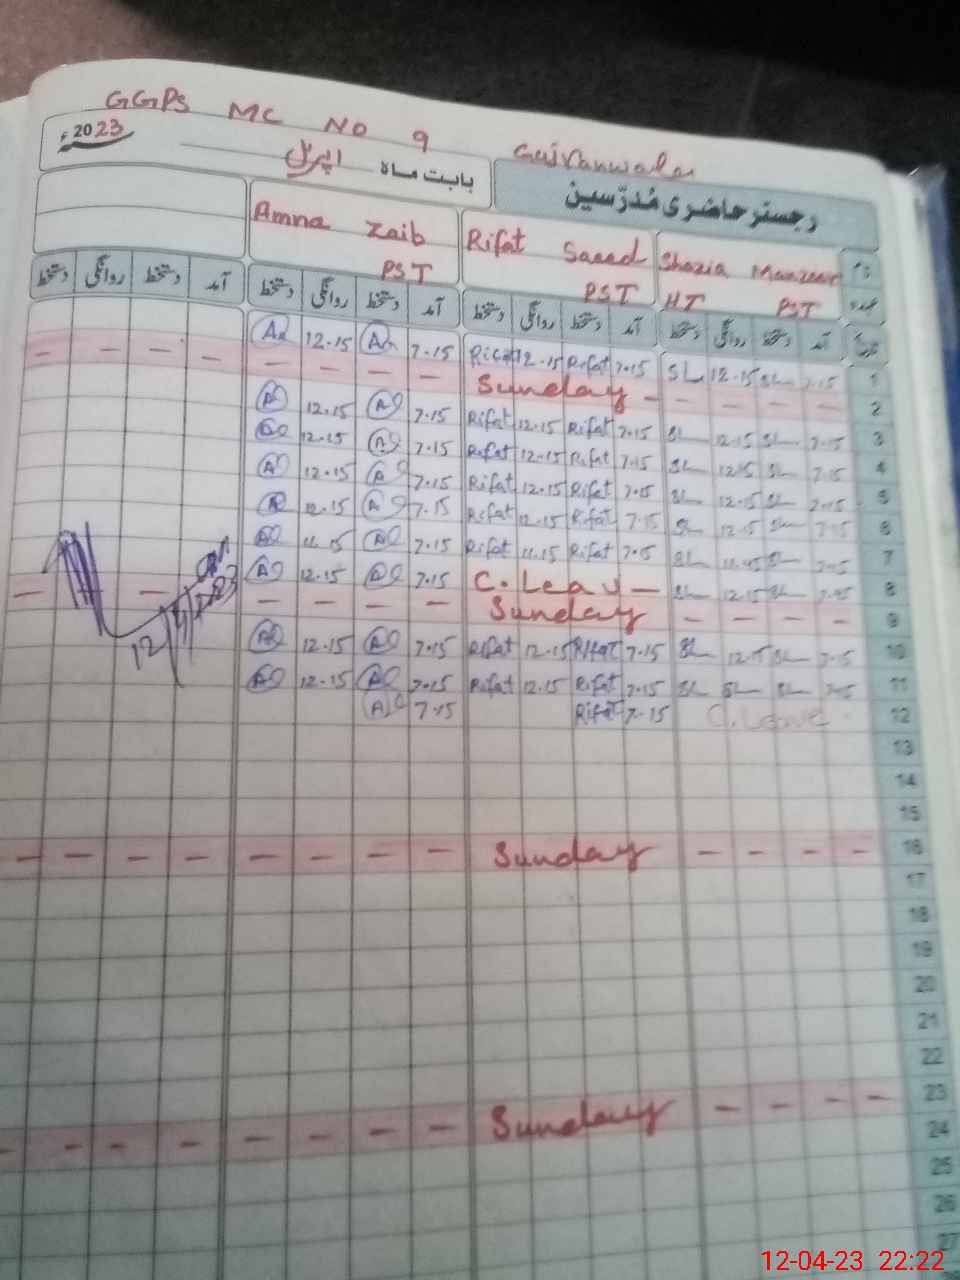 GGPS MC NO 9 Gujranwala
رجسٹر حاضری مُدرّسین بابت ماہ اپریل 2023ء
نام Shazia Manzoor Rifat Saeed Amna Zaib
عہدہ HT PST PST PST
تاریخ آمد دستخط روانگی دستخط آمد دستخط روانگی دستخط آمد دستخط روانگی دستخط آمد دستخط روانگی دستخط
1 7.15 SL 12.15 SL 7.15 Rifat 12.15 Rifat 7.15 12.15
2 - - - - Sunday - - - - - - - -
3 7.15 SL 12.15 SL 7.15 Rifat 12.15 Rifat 7.15 12.15
4 7.15 SL 12.15 SL 7.15 Rifat 12.15 Rifat 7.15 12.15
5 7.15 SL 12.15 SL 7.15 Rifat 12.15 Rifat 7.15 12.15
6 7.15 SL 12.15 SL 7.15 Rifat 12.15 Rifat 7.15 12.15
7 7.15 SL 11.15 SL 7.15 Rifat 11.15 Rifat 7.15 11.15
8 7.15 SL 12.15 SL C.Leav - 7.15 12.15
9 - - - - Sunday - - - - - -
10 7.15 SL 12.15 SL 7.15 Rifat 12.15 Rifat 7.15 12.15
11 7.15 SL SL SL 7.15 Rifat 12.15 Rifat 7.15 12.15
12 C.Leave 7.15 Rifat 7.15
12/4/2023
13
14
15
16 - - - - Sunday - - - - - - - -
17
18
19
20
21
22
23 - - - - Sunday - - - - - - - -
24
25
26
27
12-04-23 22:22